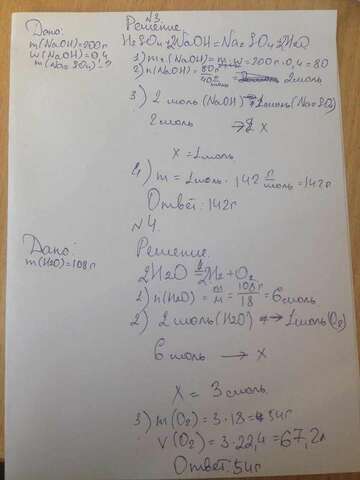 №3.
Дано:
m(NaOH)=200г
w(NaOH)=0,4
m(Na₂SO₄)-?
Решение
H₂SO₄+2NaOH=Na₂SO₄+2H₂O
1) m₂(NaOH)=m·w=200г·0,4=80
2) n(NaOH)=80г/40г/моль= 2моль
3) 2 моль(NaOH) → 1моль(Na₂SO₄)
2моль → x
x=1моль
4) m=1моль·142 г/моль=142г
Ответ: 142г
№4
Дано:
m(H₂O)=108г
Решение.
2H₂O=2H₂+O₂
1) n(H₂O)=m/M=108/18=6моль
2) 2моль(H₂O) → 1моль(O₂)
6моль → x
x=3моль
3) m(O₂)=3·18=54г
V(O₂)=3·22,4=67,2л
Ответ: 54г